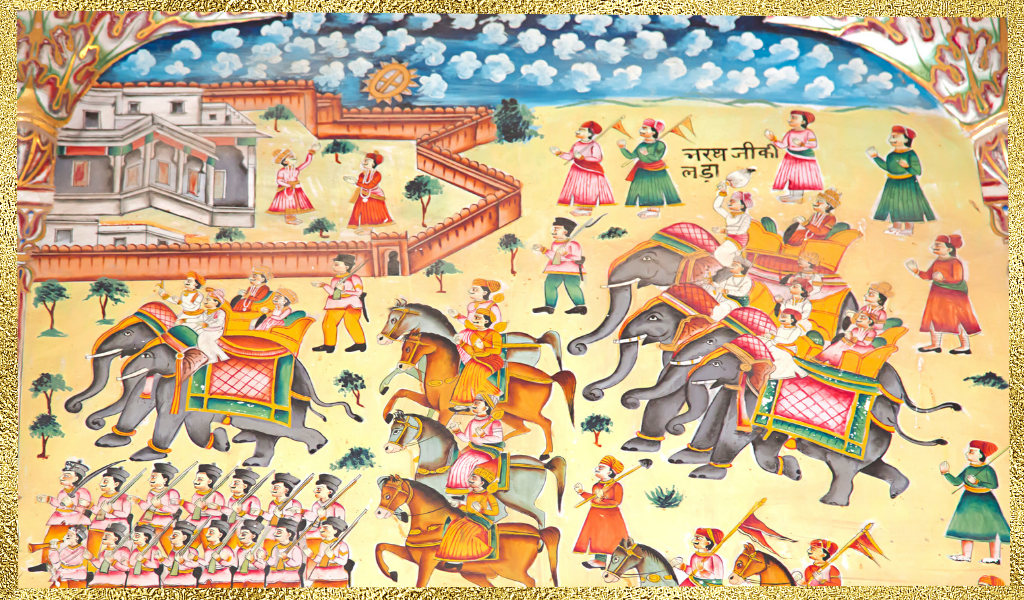 नरथ जीकी
लड़ा